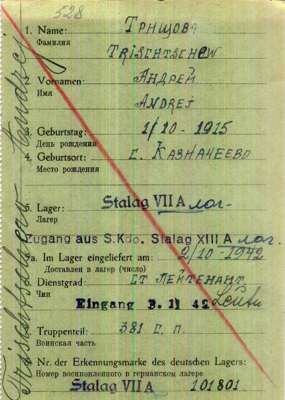 528
1. Name: Трищова
Фамилия
TRISCHTSCHEW
2. Vornamen: Андрей
Имя
ANDREJ
3. Geburtstag: 1/10-1915
День рождения
4. Geburtsort: с. Казначеево
Место рождения
5. Lager: Stalag VII A лаг-
Лагер
Zugang aus S.Kdo. Stalag XIII A лаг.
5a. Im Lager eingeliefert am: 2/10-1942
Доставлен в лагер (число)
6. Dienstgrad: СТ ЛЕЙТЕНАНТ
Чин
Eingang 3. 11 42
7. Truppenteil: 381 С. П.
Воинская часть
8. Nr. der Erkennungsmarke des deutschen Lagers:
Номер военнопленного в германском лагере
Stalag VII A 101801.
Andrej